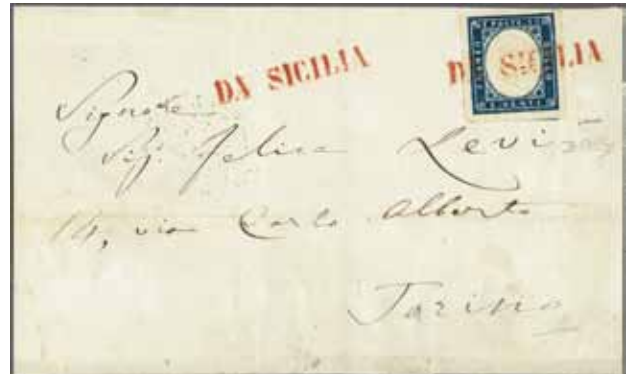 DA SICILIA
DA SICILIA
Signore
Sig. Felice Levi
14, via Carlo Alberto
Torino